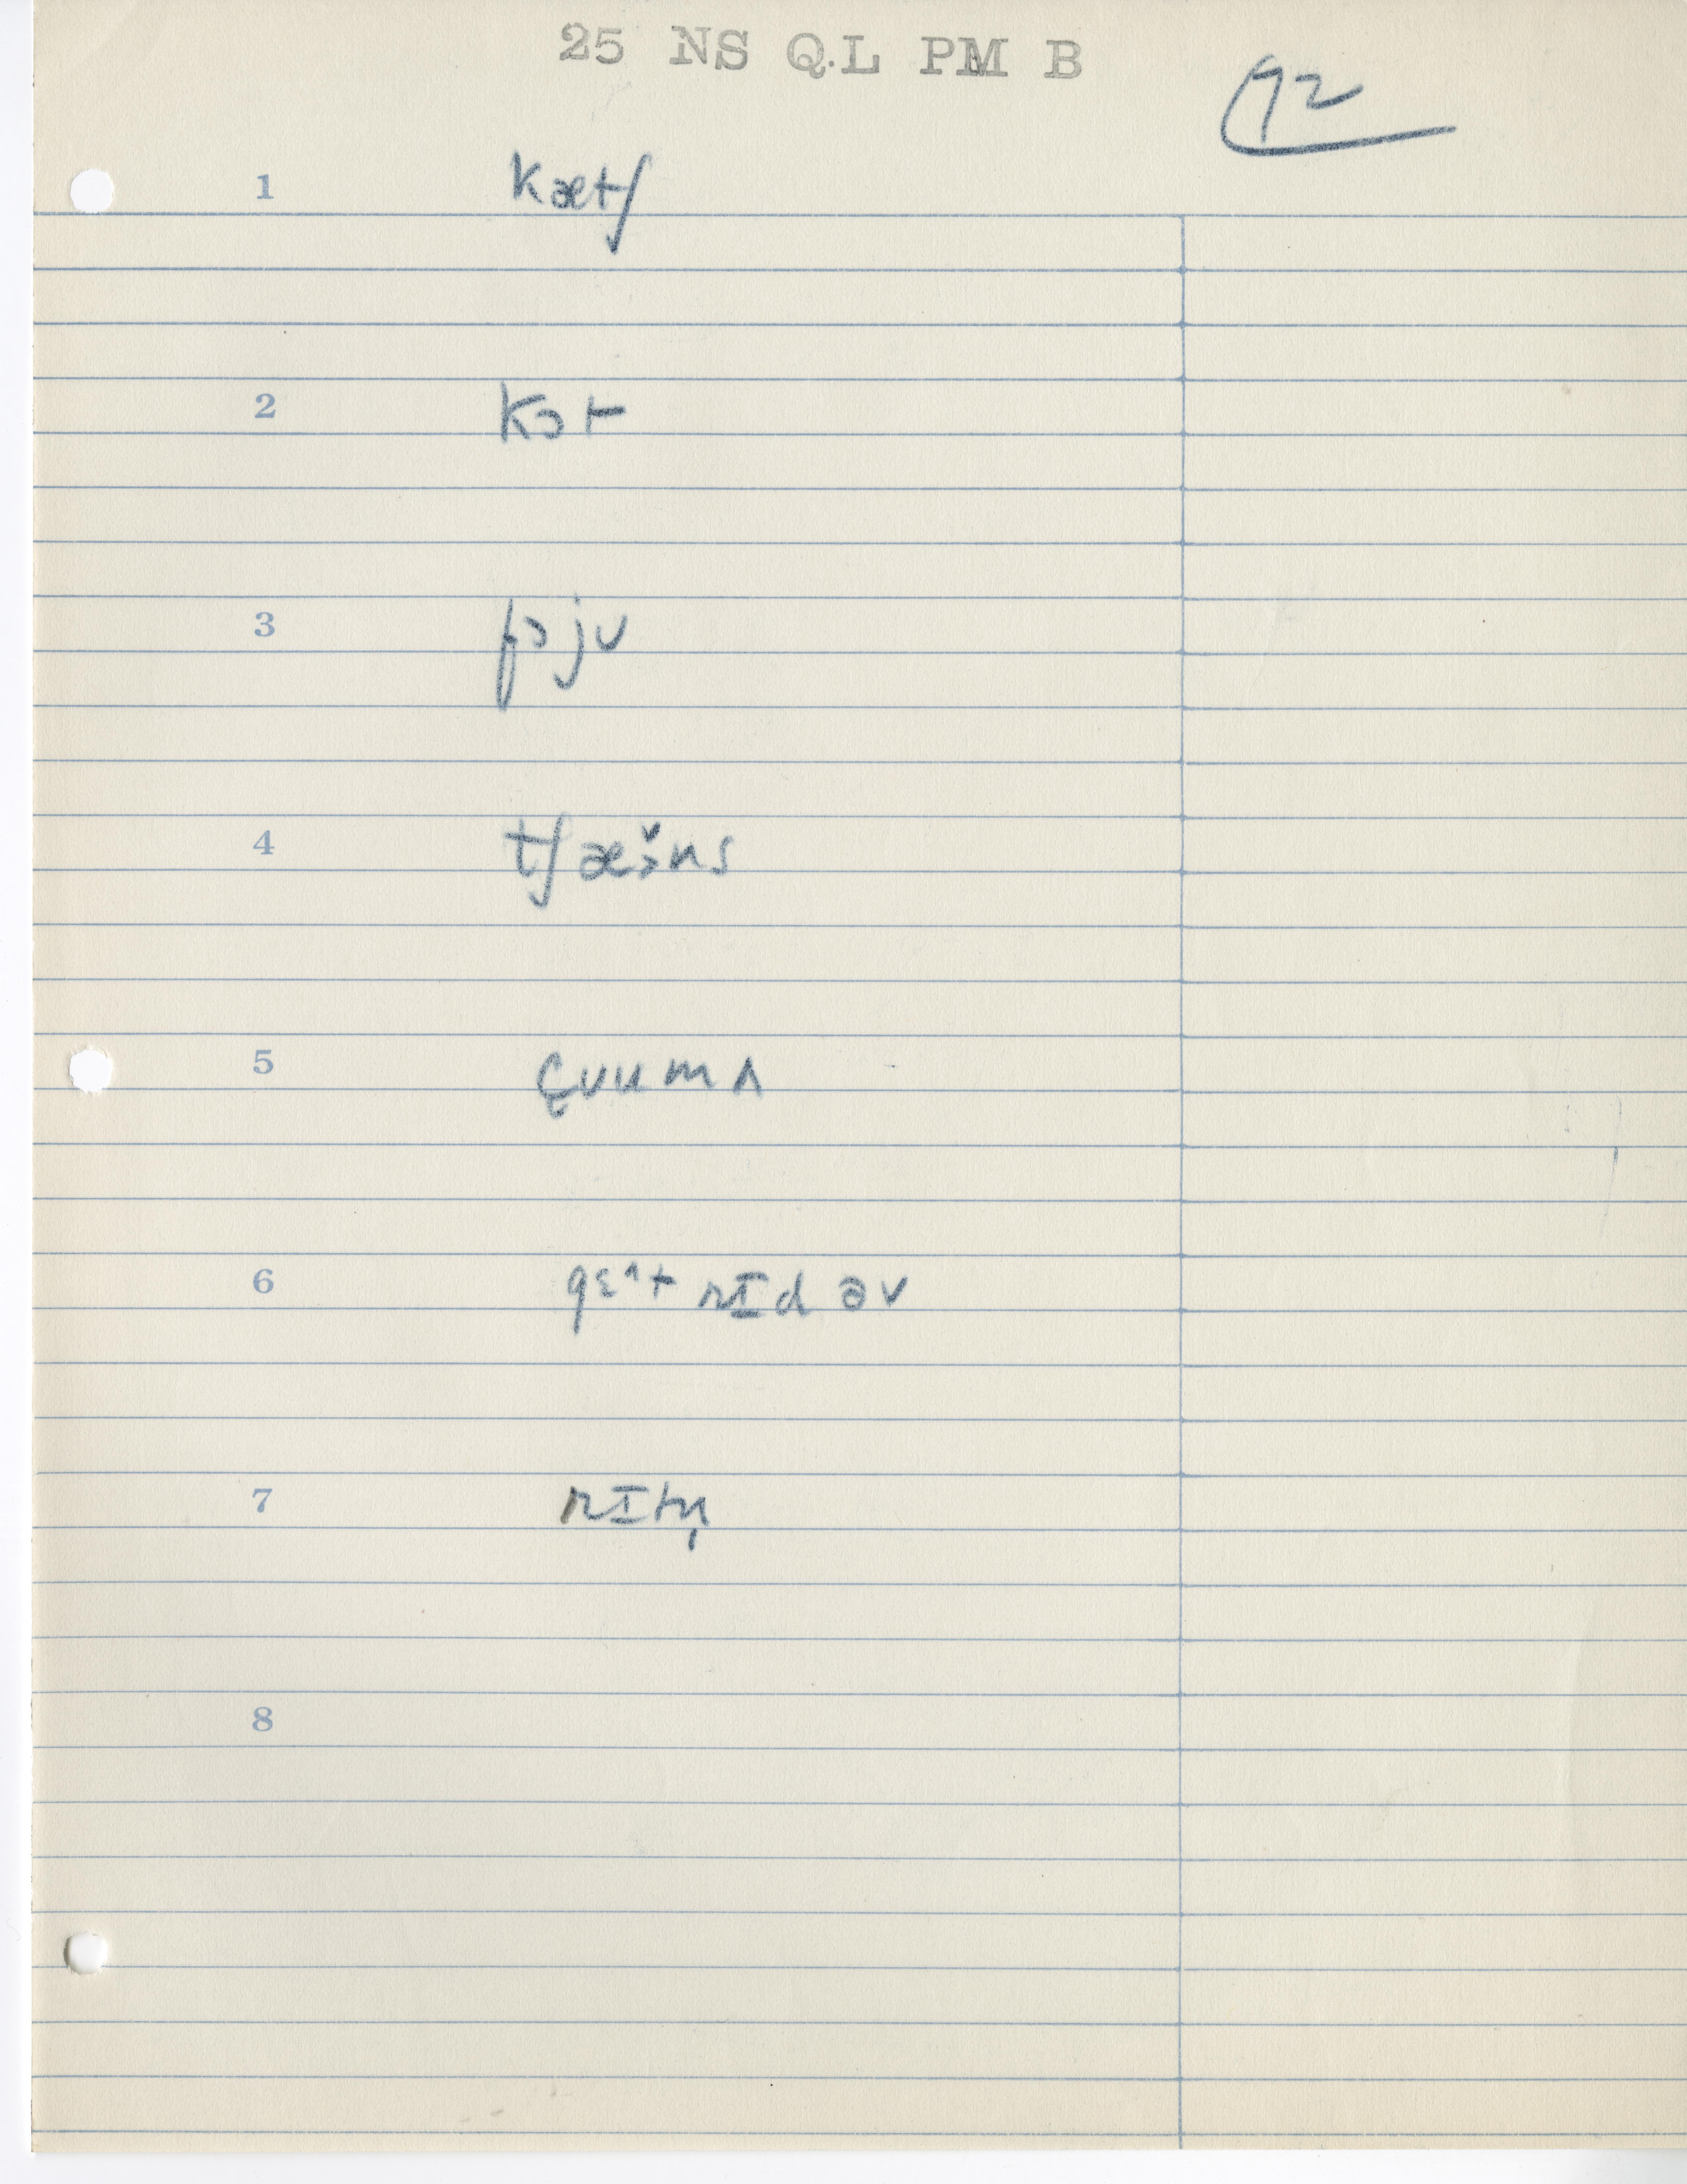 25 NS Q.L PM B
92
1 kætʃ
2 kɔt
3 fɔju
4 tʃæɔ̆ns
5 ɛvuma
6 gɛ^t rɪd əv
7 rɪtn̩
8